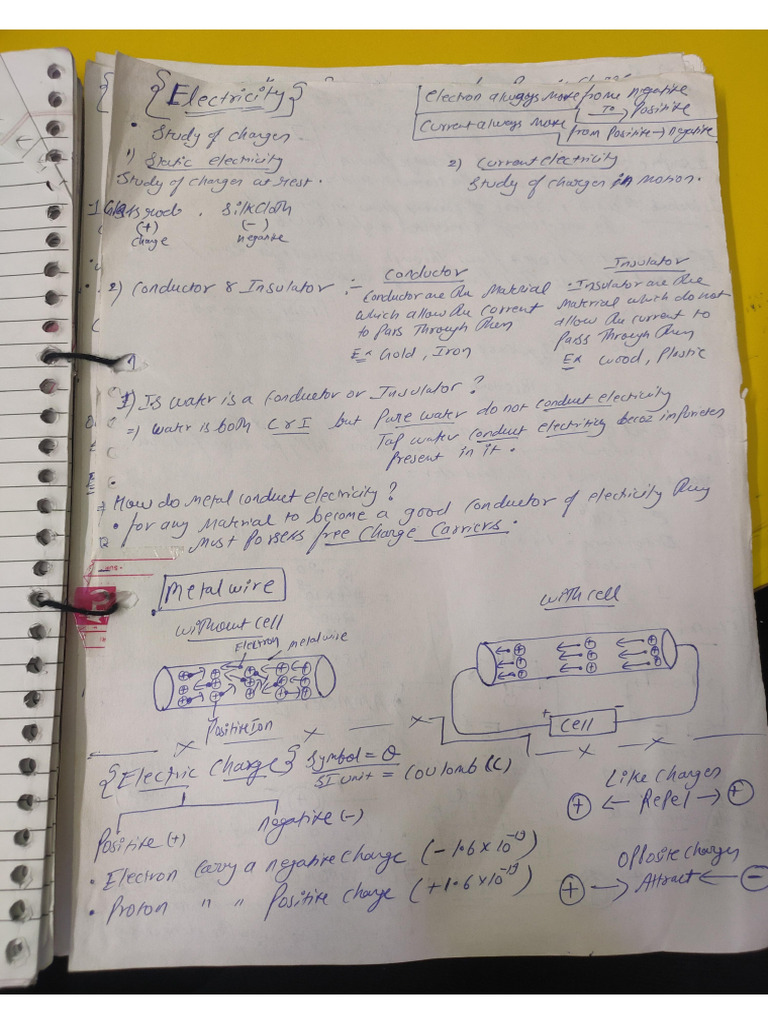 {Electricity}
Electron always move from negative
To → Positive
Current always move from Positive → negative
• Study of charges
1) Static electricity
Study of charges at rest.
2) Current electricity
Study of charges in motion.
Glass rod . Silk Cloth
(+) (-)
charge negative
2) Conductor & Insulator :-
Conductor
Conductor are the Material
which allow the current
to Pass Through them
Ex Gold, Iron
Insulator
• Insulator are the
Material which do not
allow the current to
Pass Through they
Ex wood, Plastic
1) Is water is a conductor or Insulator ?
⇒ water is both C & I but Pure water do not conduct electricity
Tap water conduct electricity becoz impurities
Present in it.
⇒ How do metal conduct electricity ?
• for any Material to become a good conductor of electricity they
Must Possess free Charge Carriers.
• Metal wire
without cell
Electron
metal wire
Positive Ion
with cell
+ cell -
{Electric Charge} Symbol = Q
SI unit = Coulomb (C)
Positive (+)
negative (-)
• Electron Carry a negative Charge (-1.6 x 10⁻¹⁹)
• Proton " " Positive charge (+1.6 x 10⁻¹⁹)
Like Charges
+ ← Repel → +
Opposite charges
+ → Attract ← -